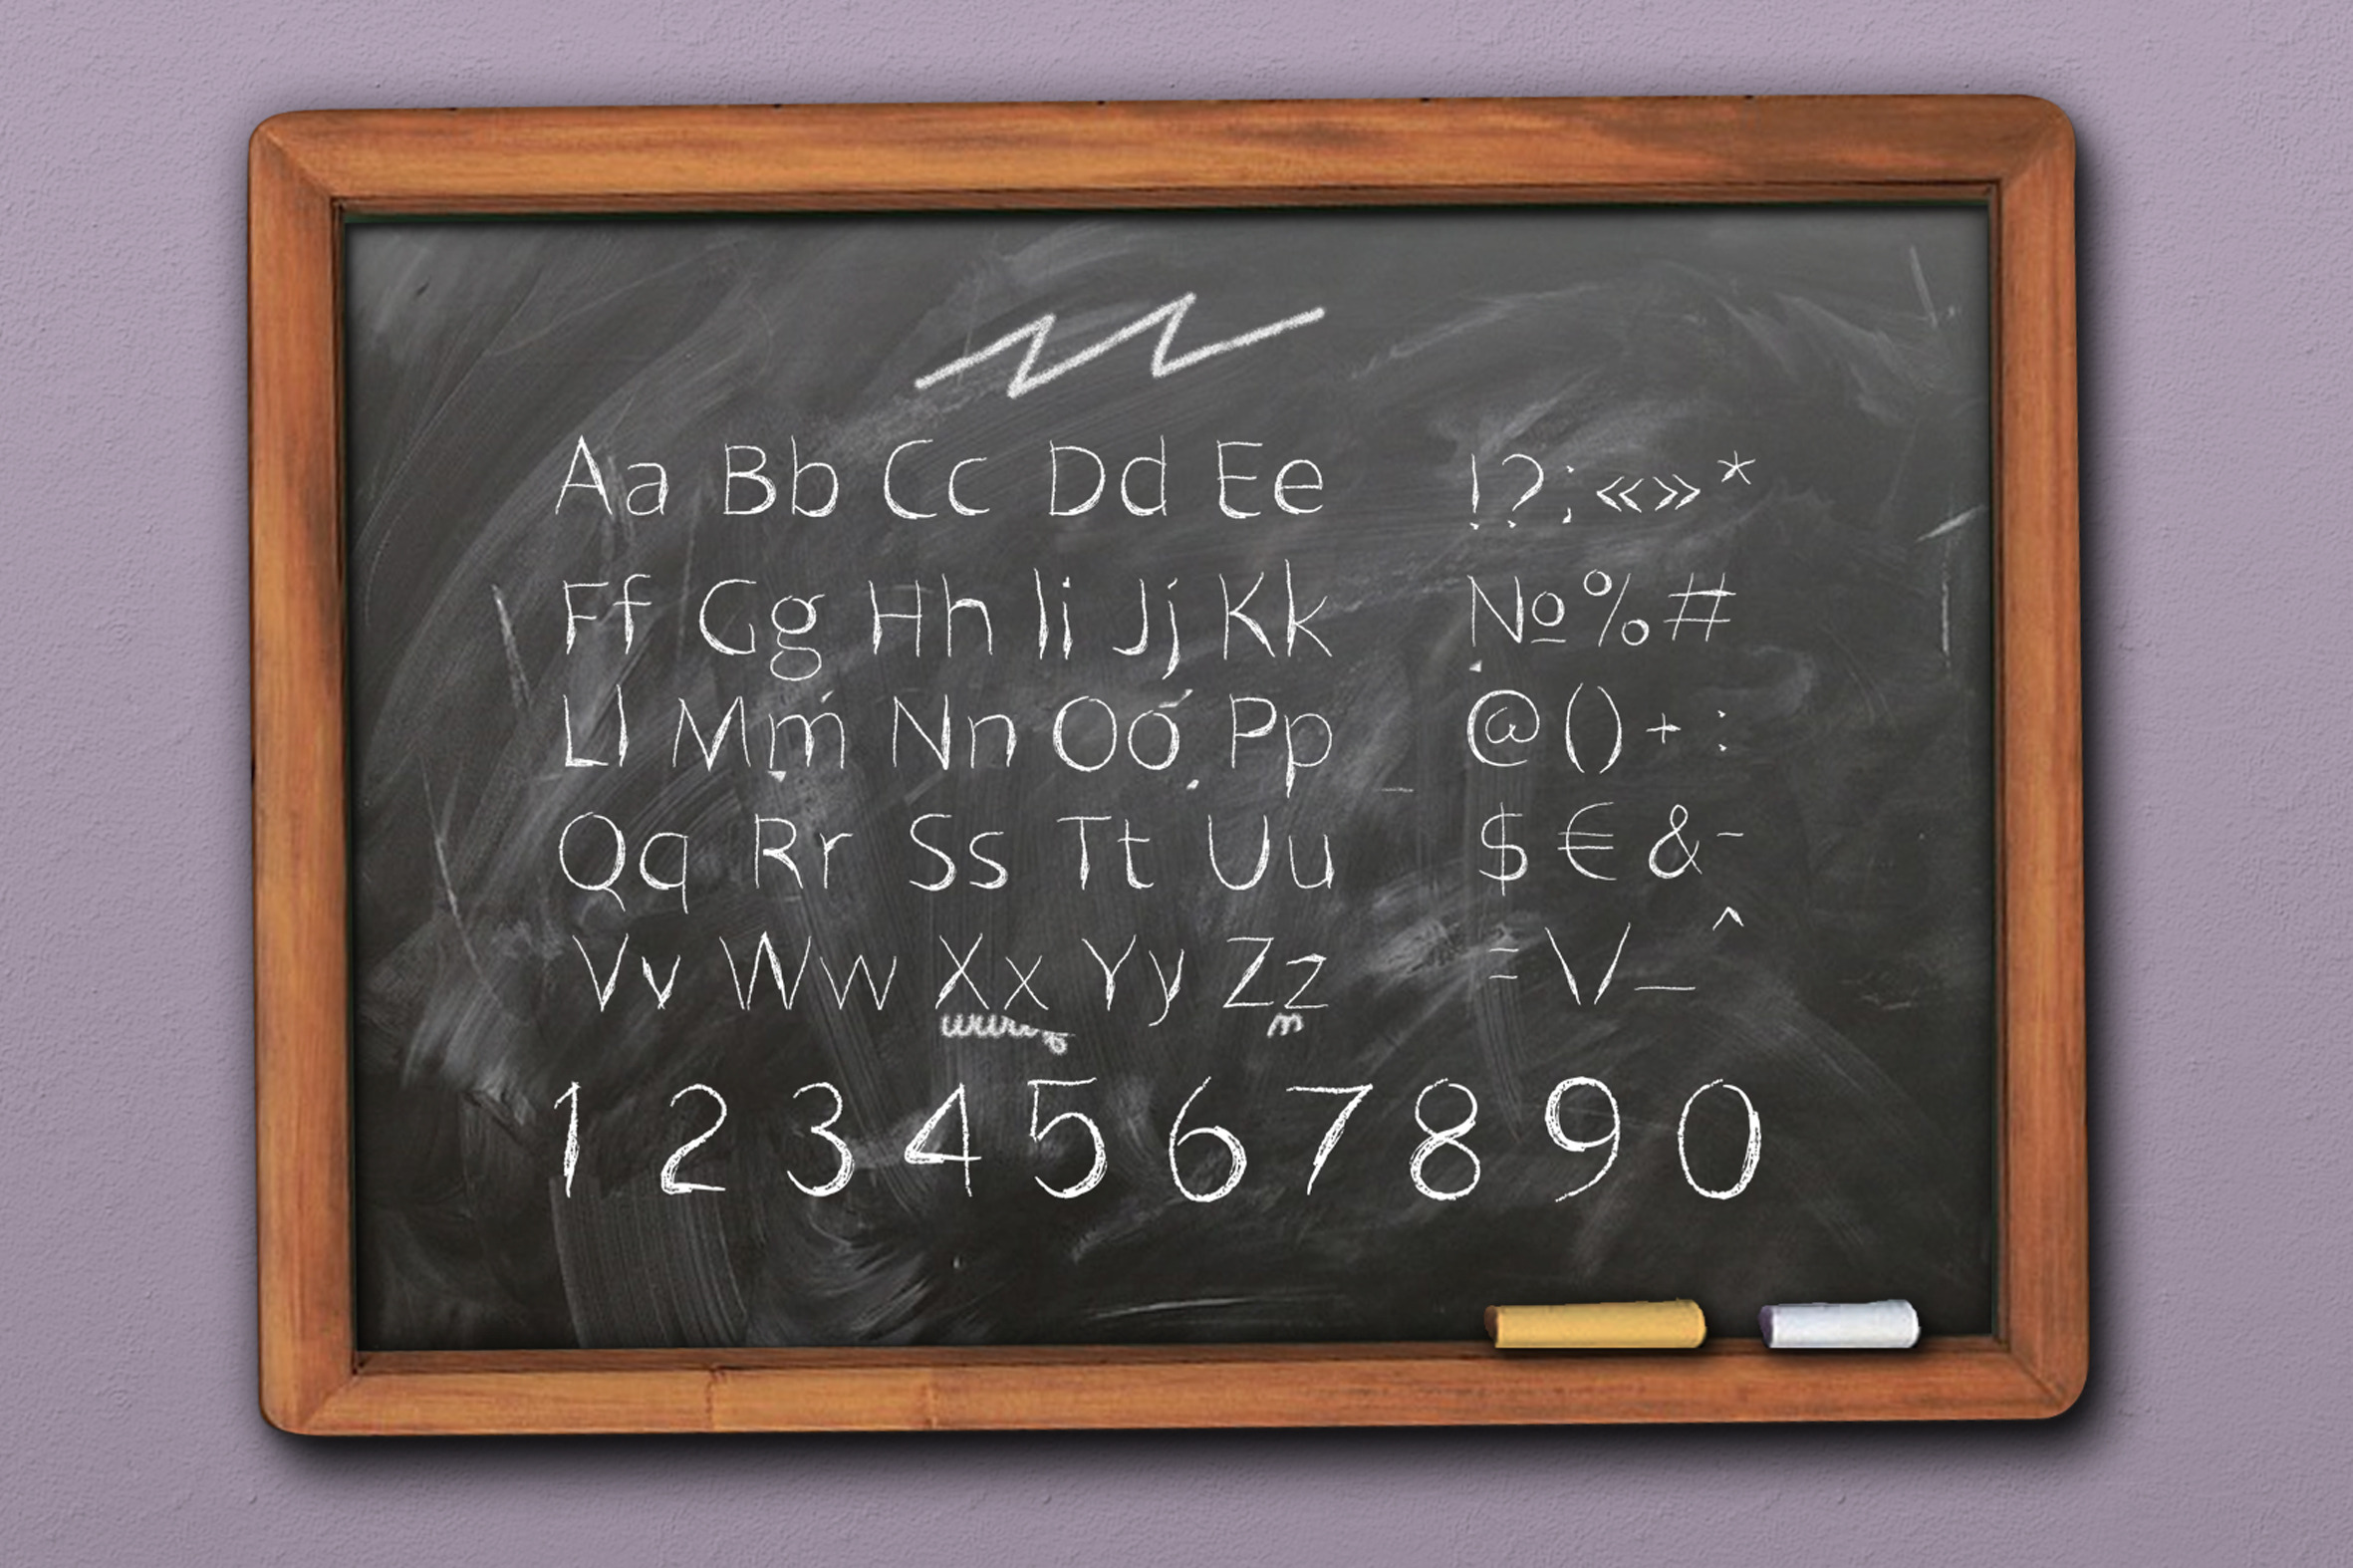 Aa Bb Cc Dd Ee !?;«»*
Ff Gg Hh Ii Jj Kk №%#
Ll Mm Nn Oo Pp @()+:
Qq Rr Ss Tt Uu $€&-
Vv Ww Xx Yy Zz =\/_^
1 2 3 4 5 6 7 8 9 0